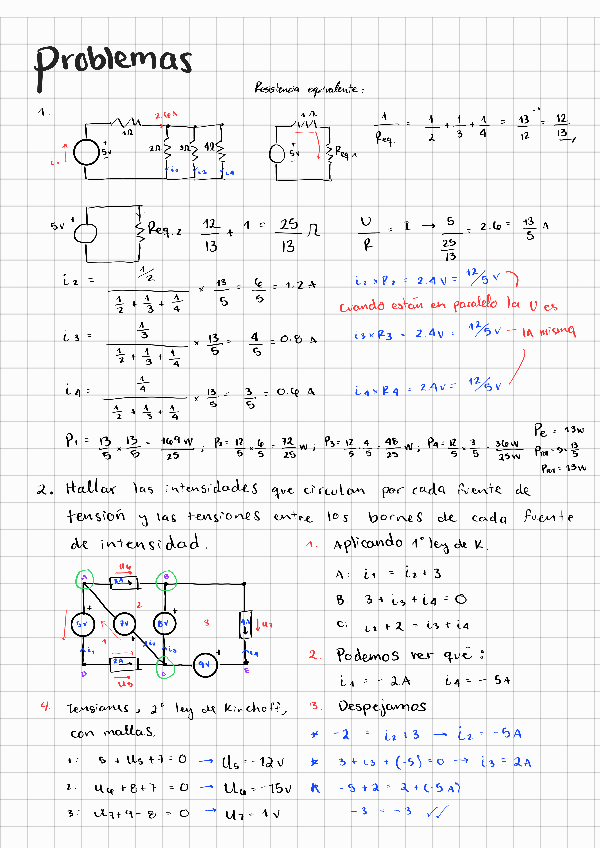 Problemas
Resistencia equivalente:
1.
2.6A
1Ω
5v
2Ω 3Ω 4Ω
i2 i3 i4
1Ω
5v
Req.1
1/Req. = 1/2 + 1/3 + 1/4 = 13/12 = 12/13
5v
Req.2
12/13 + 1 = 25/13 Ω
U/R = I → 5/(25/13) = 2.6 = 13/5 A
i2 = (1/2)/(1/2 + 1/3 + 1/4) × 13/5 = 6/5 = 1.2 A
i2×R2 = 2.4V = 12/5 V
Cuando están en paralelo la U es
i3 = (1/3)/(1/2 + 1/3 + 1/4) × 13/5 = 4/5 = 0.8 A
i3×R3 = 2.4V = 12/5 V -- la misma
i4 = (1/4)/(1/2 + 1/3 + 1/4) × 13/5 = 3/5 = 0.6 A
i4×R4 = 2.4V = 12/5 V
P1 = 13/5 × 13/5 = 169/25 W ; P2 = 12/5 · 6/5 = 72/25 W ; P3 = 12/5 · 4/5 = 48/25 W ; P4 = 12/5 · 3/5 = 36W/25W
Pe = 13W
= 5 · 13/5
= 13W
2. Hallar las intensidades que circulan por cada fuente de
tensión y las tensiones entre los bornes de cada fuente
de intensidad.
A
U6
3A
B
5V
7V
8V
4A
U7
1
2
3
i1
i2
i3
i4
D
2A
U5
C
9V
E
1. Aplicando 1º ley de K.
A: i1 = i2 + 3
B 3 + i3 + i4 = 0
C: i2 + 2 = i3 + i4
2. Podemos ver qué:
i1 = - 2A i4 = - 5A
3. Despejamos
* -2 = i2 + 3 → i2 = -5A
* 3 + i3 + (-5) = 0 → i3 = 2A
* -5 + 2 = 2 + (-5A)
-3 = -3 ✓✓
4. Tensiones, 2º ley de Kirchoff,
con mallas.
1: 5 + U5 + 7 = 0 → U5 = -12V
2. U6 + 8 + 7 = 0 → U6 = -15V
3: U7 + 9 - 8 = 0 → U7 = 1V